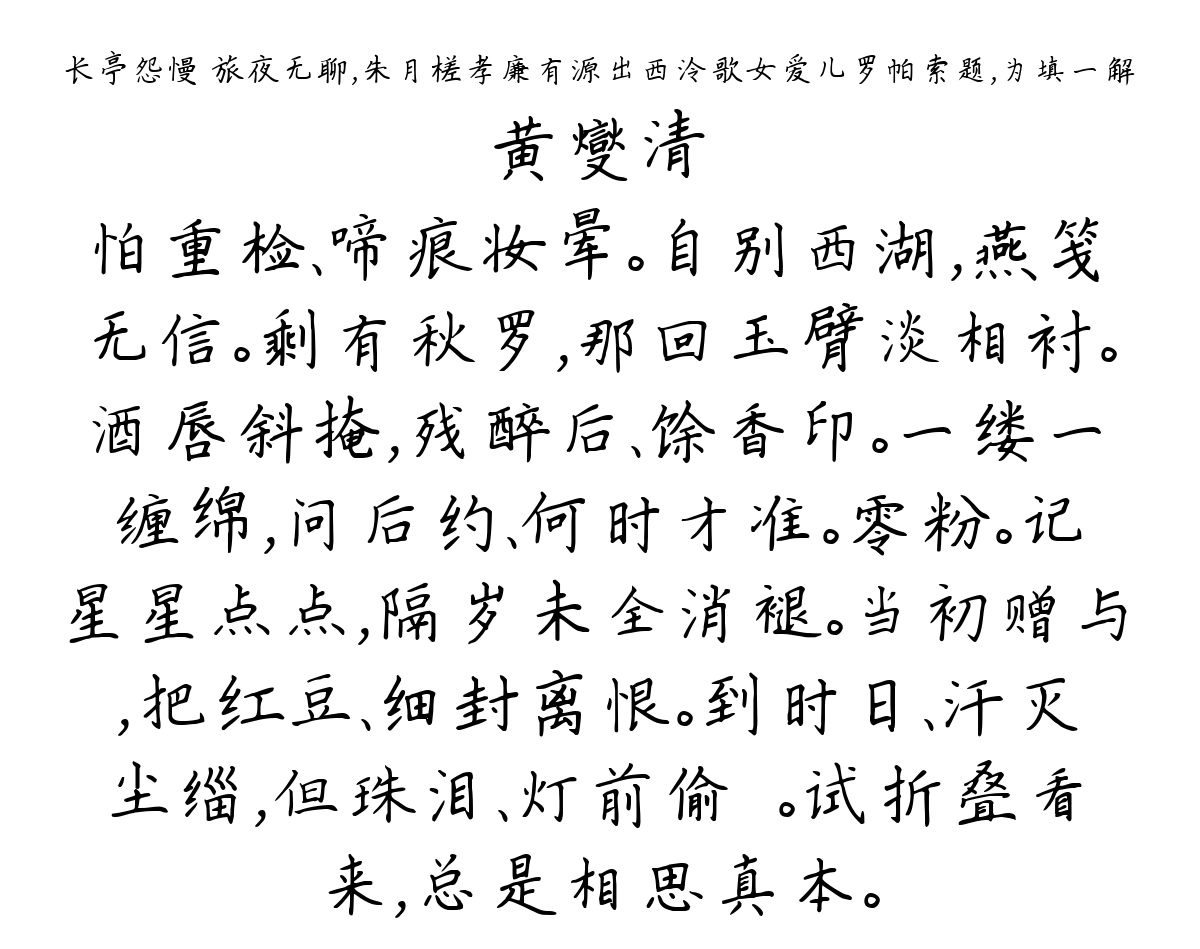 长亭怨慢 旅夜无聊,朱月槎孝廉有源出西泠歌女爱儿罗帕索题,为填一解
黄燮清
怕重检、啼痕妆晕。自别西湖,燕笺
无信。剩有秋罗,那回玉臂淡相衬。
酒唇斜掩,残醉后、馀香印。一缕一
缠绵,问后约、何时才准。零粉。记
星星点点,隔岁未全消褪。当初赠与
,把红豆、细封离恨。到时日、汗灭
尘缁,但珠泪、灯前偷 。试折叠看
来,总是相思真本。